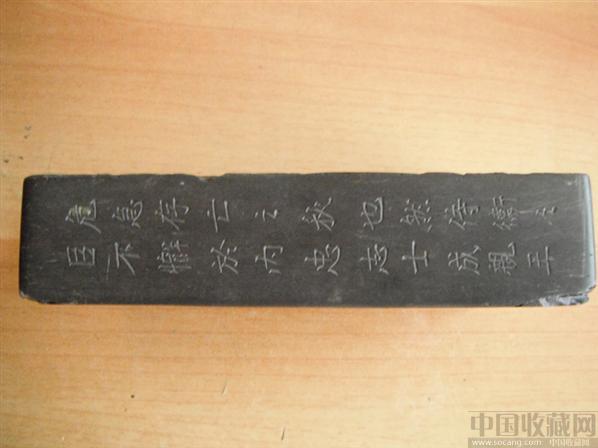 危急存亡之秋也然侍衛之
臣不懈於内忠志士成觀
中国收藏网
www.socang.com ©中国收藏网